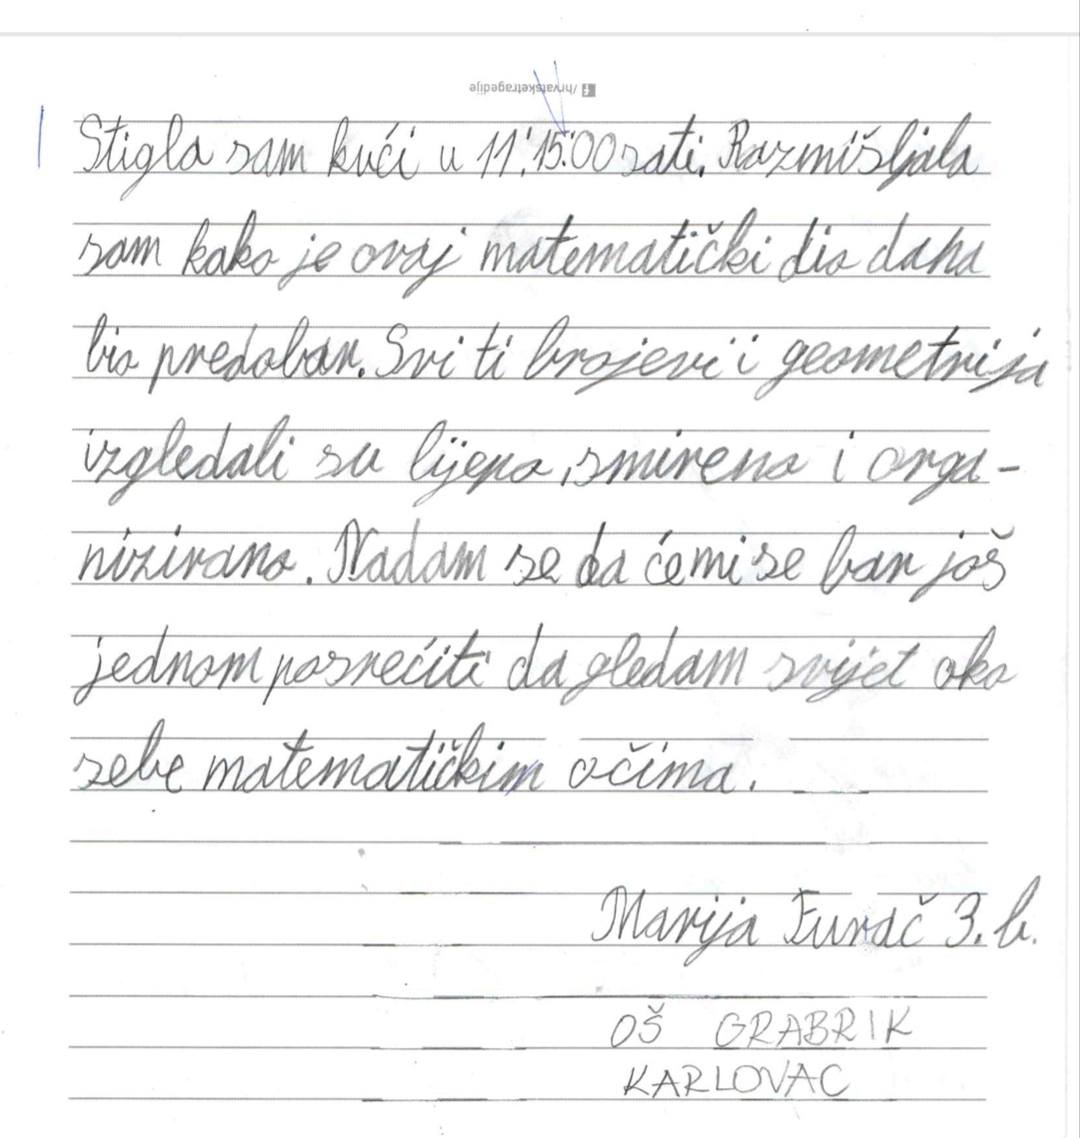 /hrvatsketragedije
Stigla sam kući u 11:15:00 sati. Razmišljala
sam kako je ovaj matematički dio dana
bio predobar. Svi ti brojevi i geometrija
izgledali su lijepo, smireno i orga-
nizirano. Nadam se da će mi se bar još
jednom posrećiti da gledam svijet oko
sebe matematičkim očima.
Marija Furač 3. b.
OŠ GRABRIK
KARLOVAC